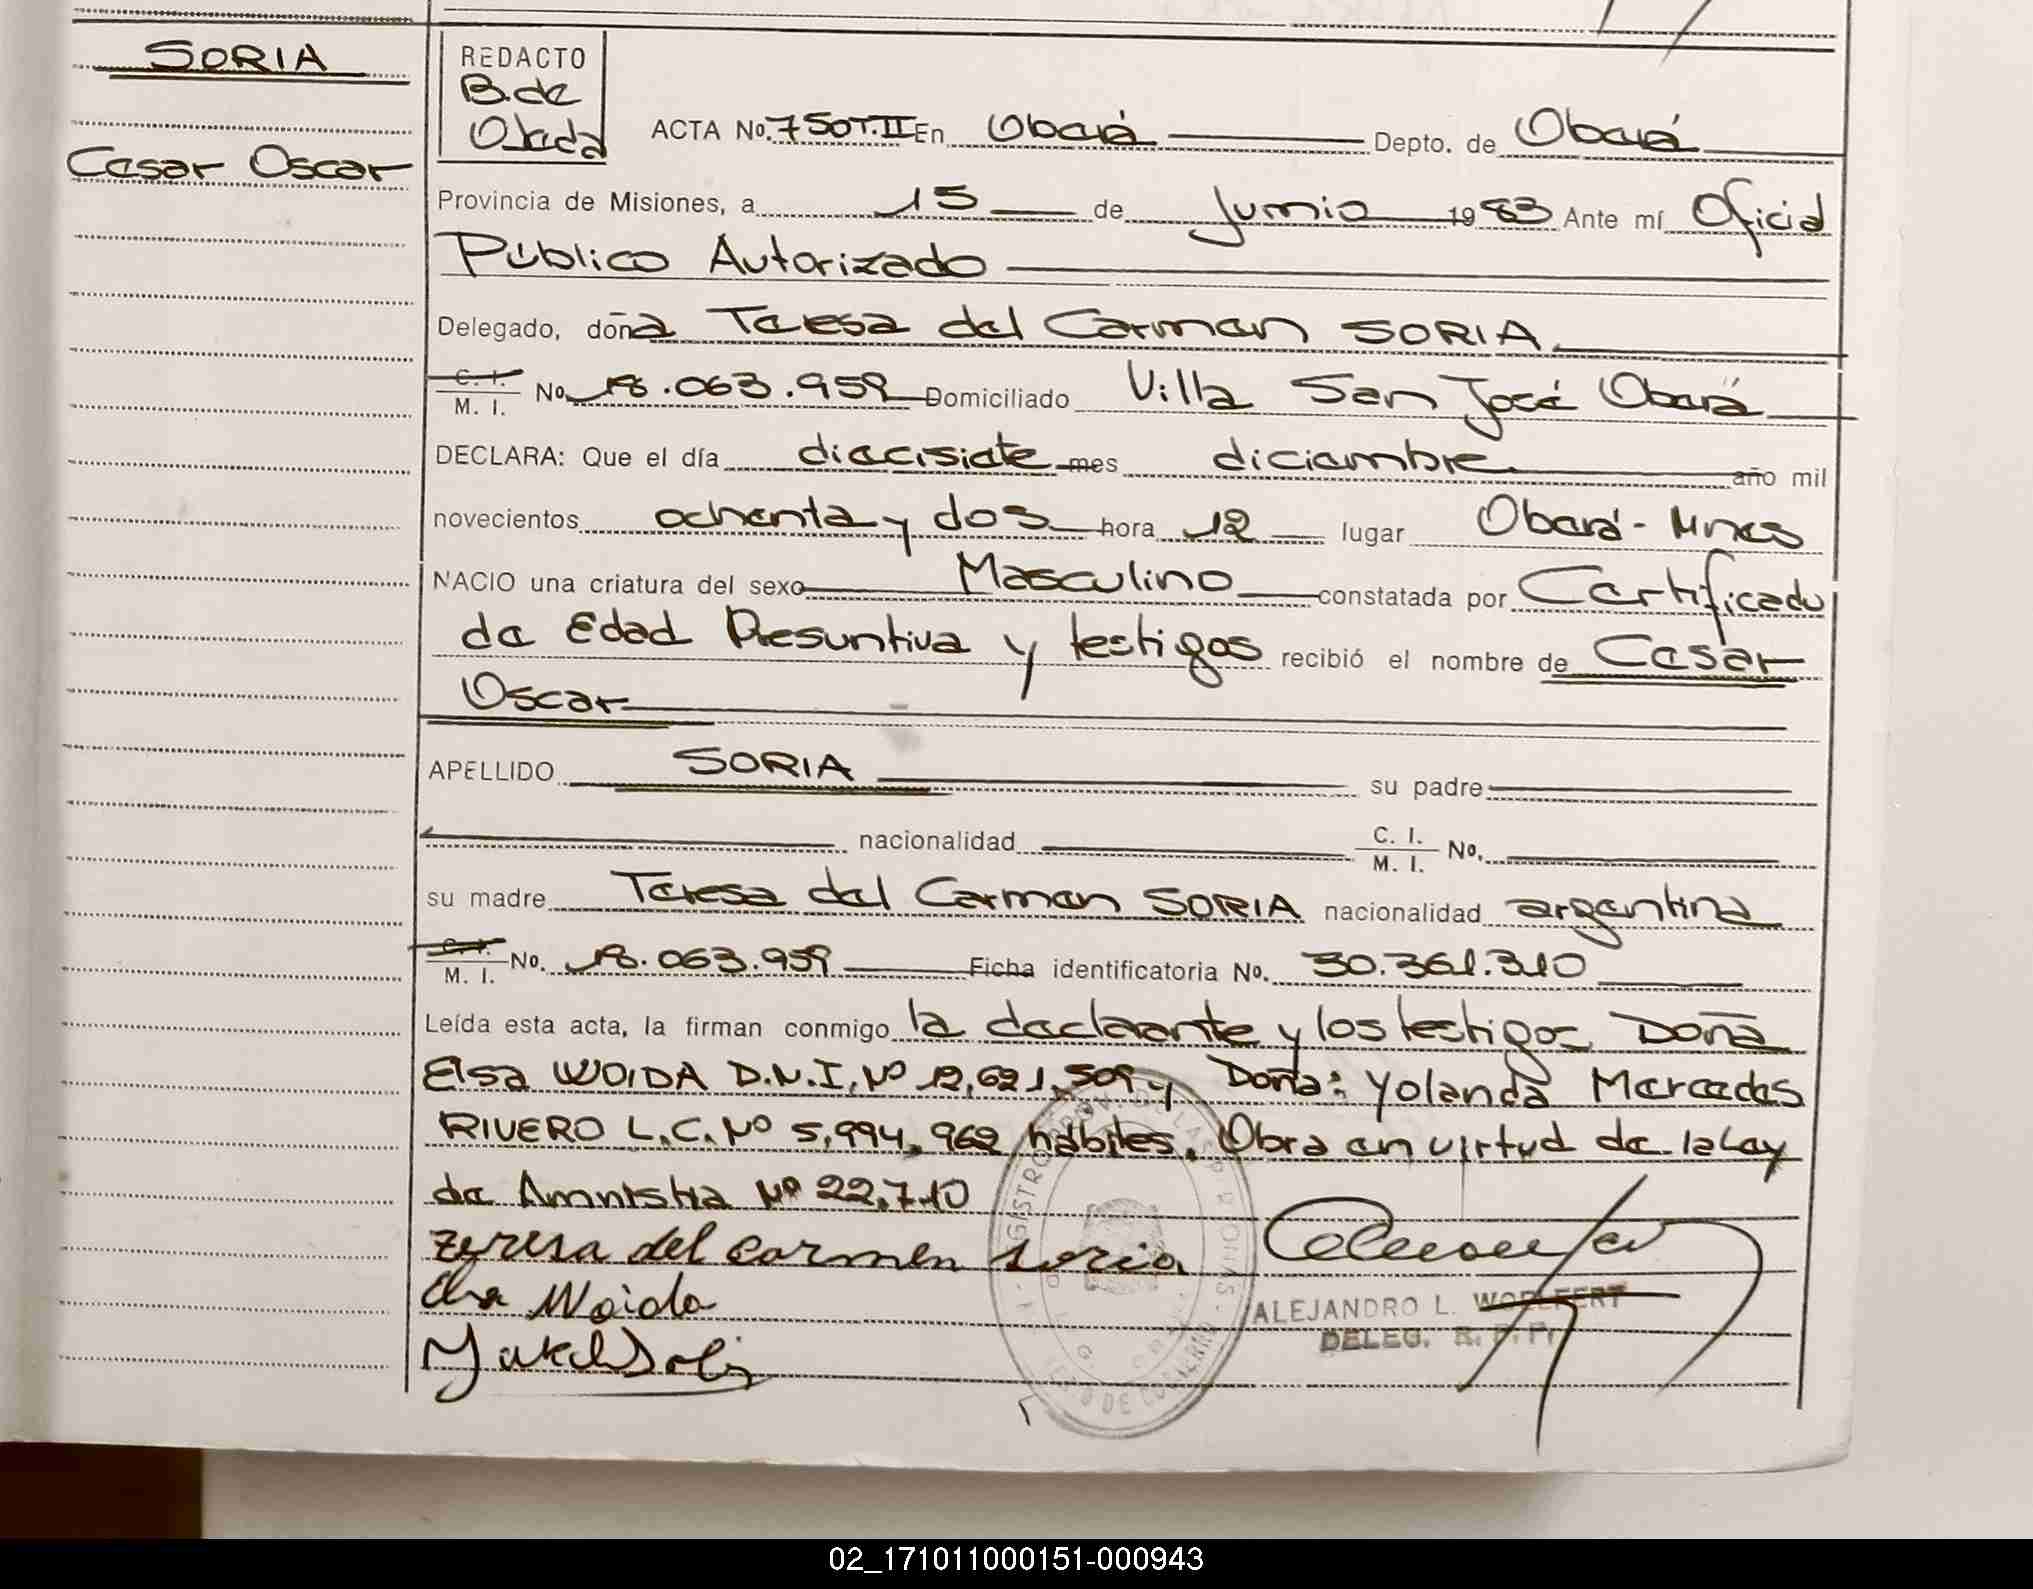 SORIA
Cesar Oscar
REDACTO
B. de
Ojeda
ACTA No. 750T.II En Oberá Depto. de Oberá
Provincia de Misiones, a 15 de Junio 1983 Ante mí Oficial
Público Autorizado
Delegado, doña Teresa del Carmen SORIA
C. I. / M. I. No 18.063.959 Domiciliado Villa San José Oberá
DECLARA: Que el día diecisiete mes diciembre año mil
novecientos ochenta y dos hora 12 lugar Oberá - Mnes
NACIO una criatura del sexo Masculino constatada por Certificado
de Edad Presuntiva y testigos recibió el nombre de Cesar
Oscar
APELLIDO SORIA su padre
nacionalidad C. I. / M. I. No.
su madre Teresa del Carmen SORIA nacionalidad argentina
C. I. / M. I. No. 18.063.959 Ficha identificatoria No. 30.361.310
Leída esta acta, la firman conmigo la declarante y los testigos Doña
Elsa WOIDA D.N.I. Nº 12,621,509 y Doña: Yolanda Mercedes
RIVERO L.C. Nº 5,994,962 hábiles. Obra en virtud de la Ley
de Amnistia Nº 22.710
teresa del carmen soria
Elsa Woida
ALEJANDRO L. WOELFERT
DELEG. R. P. P.
02_171011000151-000943